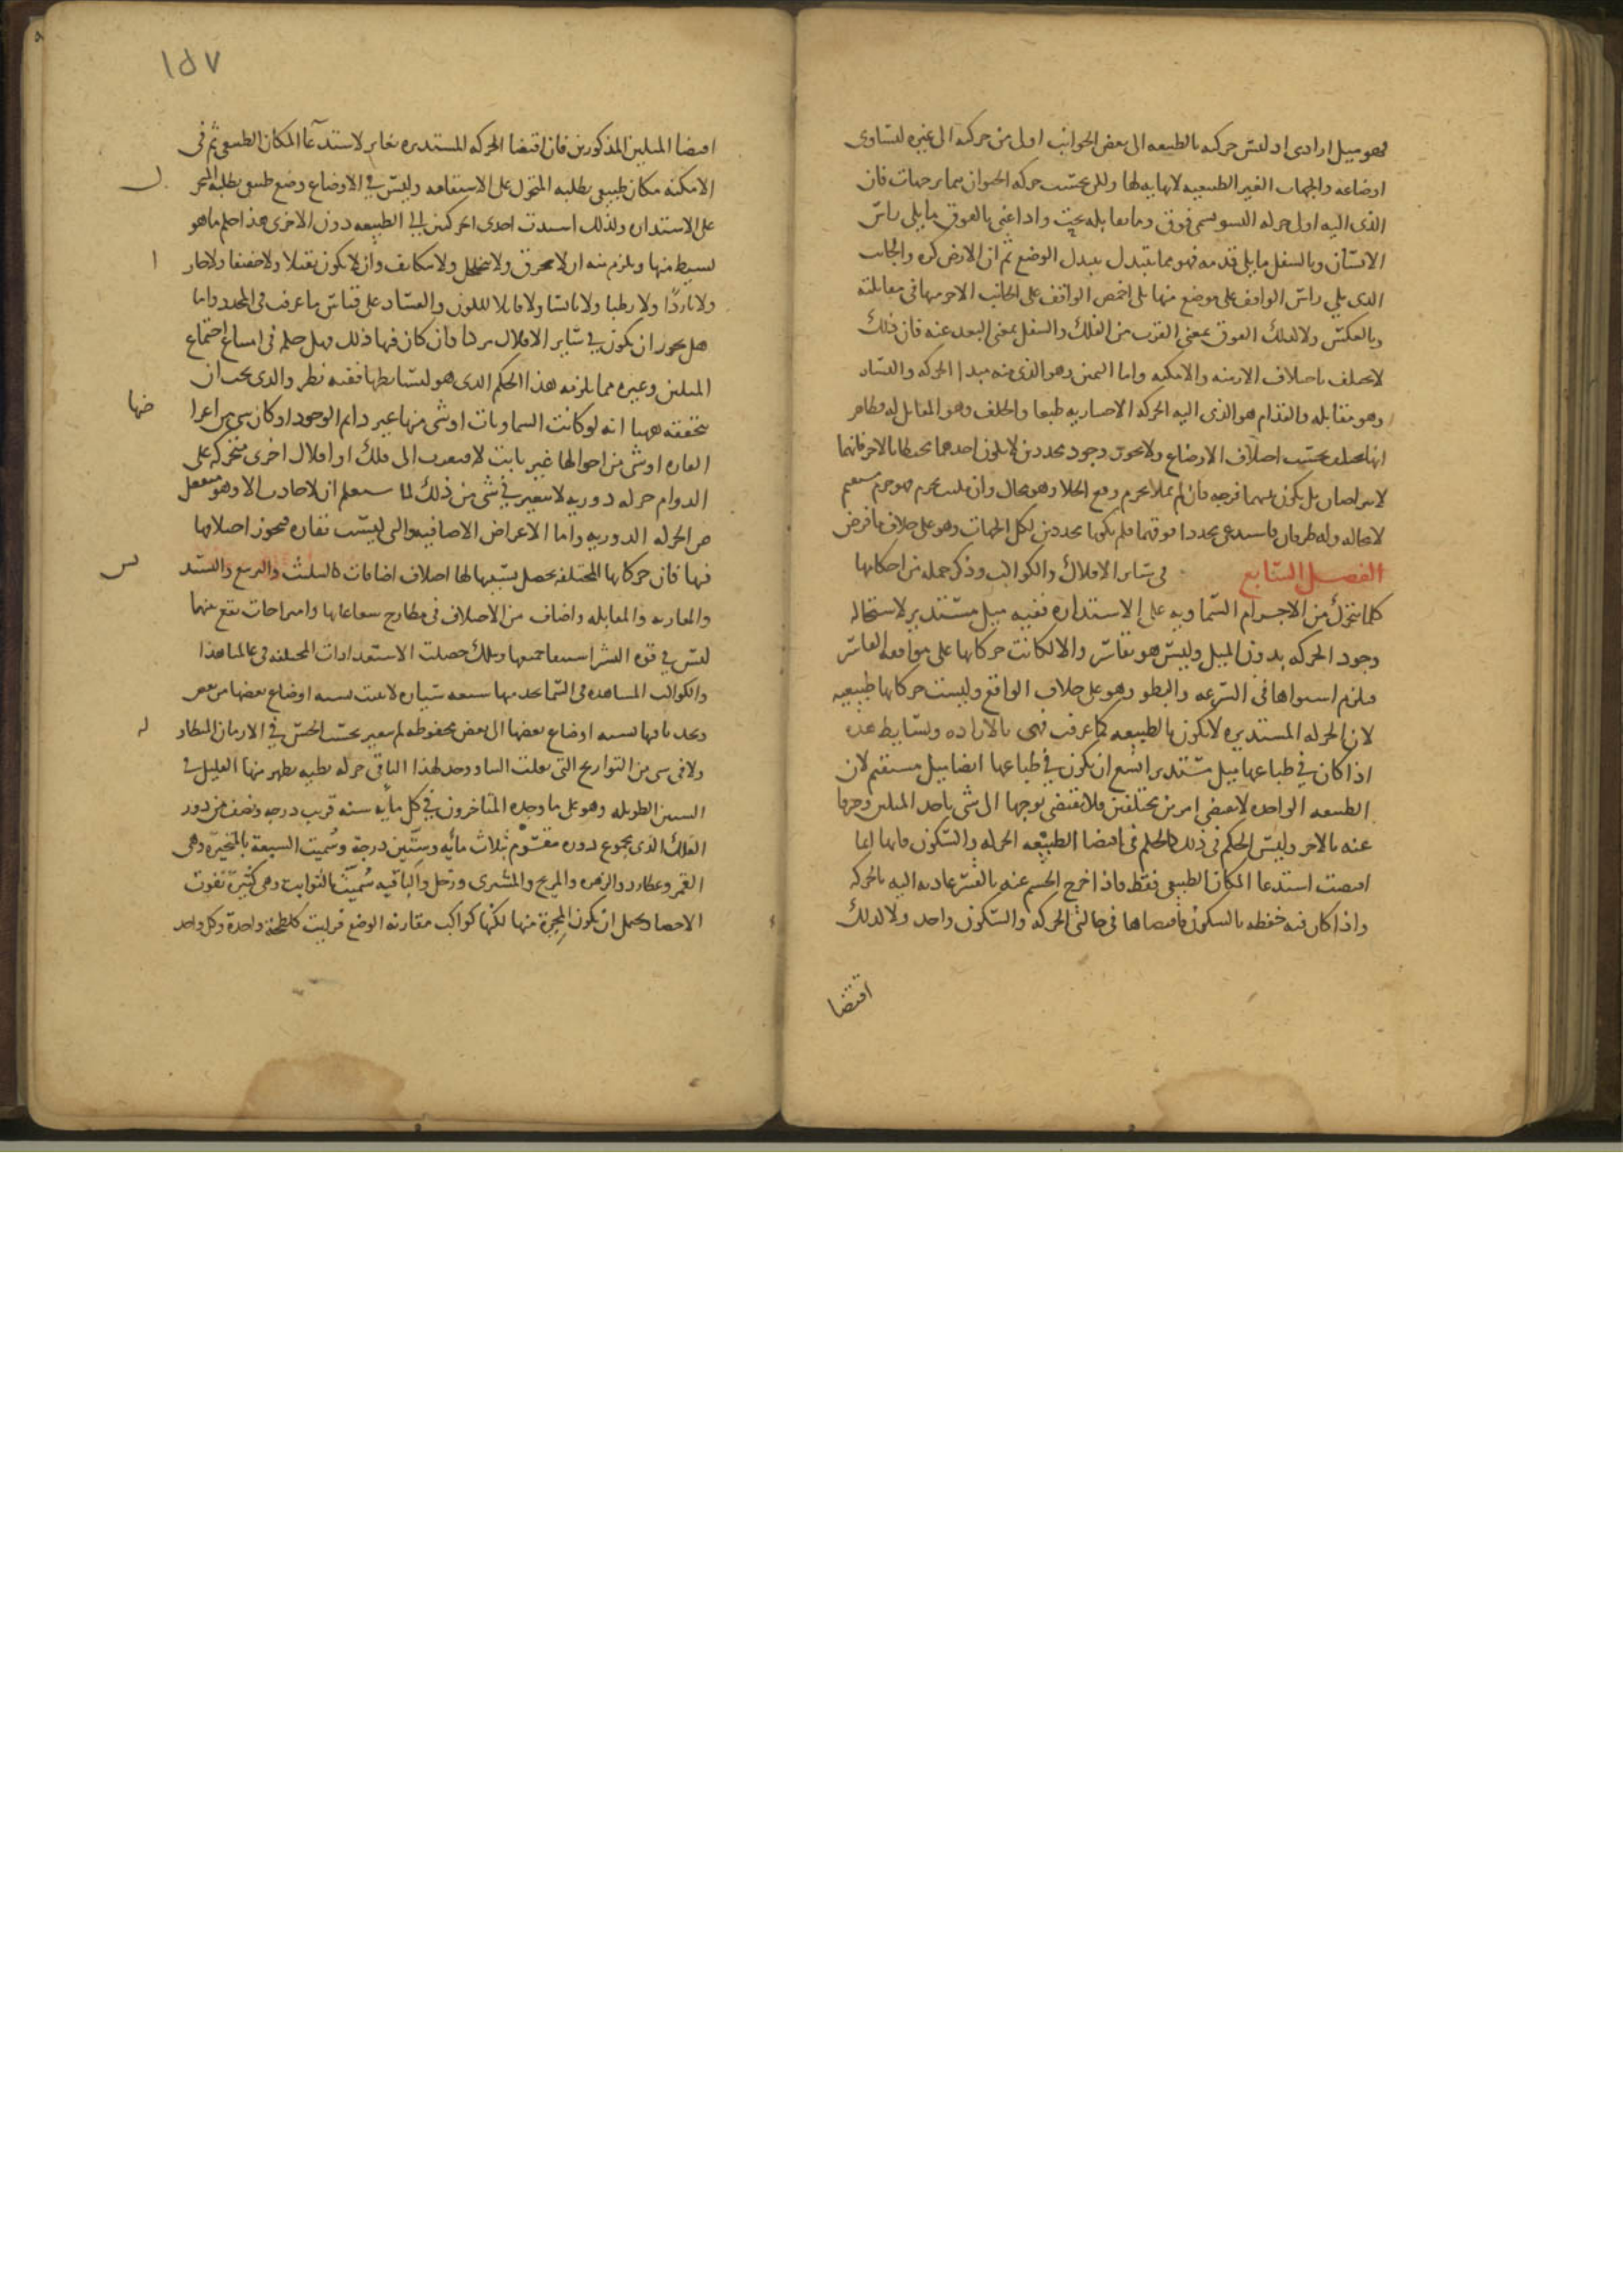 فهو ميل ارادى اذ ليس حركته بالطبيعه الى بعض الجوانب اولى من حركته الى غيره لتساوى
اوضاعه والجهات الغير الطبيعيه لا نهايه لها ولكن بحسب حركه الحيوان تتمايز جهات فان
الذى اليه اول حركه النشو سمى فوق وما يقابله تحت واذا عنى بالفوق ما يلى راس
الانسان وبالسفل ما يلى قدمه فهو مما يتبدل بتبدل الوضع ثم ان الارض كره والجانب
الذى يلى راس الواقف على موضع منها يلى اخمص الواقف على الجانب الاخر منها فى مقابلته
وبالعكس ولا كذلك الفوق بمعنى القرب من الفلك والسفل بمعنى البعد عنه فان ذلك
لا يختلف باختلاف الازمنه والامكنه واما اليمين وهو الذى منه مبدا الحركه واليسار
وهو مقابله والقدام هو الذى اليه الحركه الاختياريه طبعا والخلف وهو المقابل له فظاهر
انها تختلف بحسب اختلاف الاوضاع ولا يجوز وجود محددين لا يكون احدهما محيطا بالاخر فانهما
لا يتراصان بل يكون بينهما فرجه فان لم تملا بجرم وقع الخلا وهو محال وان ملئت بجرم فهو جرم مستقيم
لا محاله وله طرفان فاستدعى محددا فوقهما فلم يكونا محددين لكل الجهات وهو على خلاف ما فرض
الفصل السابع فى ساير الافلاك والكواكب وذكر جمله من احكامها
كلما يتحرك من الاجرام السماويه على الاستداره ففيه ميل مستدير لاستحاله
وجود الحركه بدون الميل وليس هو بقاسر والا لكانت حركاتها على موافقه القاسر
فيلزم استواها فى السرعه والبطو وهو على خلاف الواقع وليست حركاتها طبيعيه
لان الحركه المستديره لا تكون بالطبيعه كما عرفت فهى بالاراده وبسايط هذه
اذا كان فى طباعها ميل مستدير امتنع ان يكون فى طباعها ايضا ميل مستقيم لان
الطبيعه الواحده لا تقتضى امرين مختلفين فلا تقتضى توجها الى شى باحد الميلين وصرفا
عنه بالاخر وليس الحكم فى ذلك كالحكم فى اقتضا الطبيعه الحركه والسكون فانها انما
اقتضت استدعا المكان الطبيعى فقط فاذا خرج الجسم عنه بالقسر عادت اليه بالحركه
واذا كان فيه حفظته بالسكون فاقتضاها فى حالتى الحركه والسكون واحد ولا كذلك
اقتضا
١٥٧
اقتضا الميلين المذكورين فان اقتضا الحركه المستديره مغاير لاستدعا المكان الطبيعى ثم فى
الامكنه مكان طبيعى يطلبه المتحرك على الاستقامه وليس فى الاوضاع وضع طبيعى يطلبه المتحر
على الاستداره ولذلك اسندت احدى الحركتين الى الطبيعه دون الاخرى هذا حكم ما هو
بسيط منها ويلزم منه ان لا تنخرق ولا تتخلخل ولا تتكاثف وان لا تكون ثقيلا ولا خفيفا ولا حار
ولا باردًا ولا رطبا ولا يابسا ولا قابلا للكون والفساد على قياس ما عرفت فى المحدد واما
هل يجوز ان يكون فى ساير الافلاك مركبا وان كان فيها ذلك فهل حكمه فى امتناع اجتماع
الميلين وغيره مما يلزمه هذا الحكم الذى هو لبسايطها ففيه نظر والذى يجب ان
تحققه ههنا انه لو كانت السماويات او شى منها غير دايم الوجود او كان شى من اعرا
ضها
القاره او شى من احوالها غير ثابت لافتقرت الى فلك او افلاك اخرى متحركه على
الدوام حركه دوريه لا تتغير فى شى من ذلك لما ستعلم ان لا حادث الا وهو منفعل
عن الحركه الدوريه واما الاعراض الاضافيه والتى ليست بقاره فيجوز اختلافها
فيها فان حركاتها المختلفه يحصل بسببها لها اختلاف اضافات كالتثليث والتربيع والتسد
يس
والمقارنه والمقابله واصناف من الاختلاف فى مطارح شعاعاتها وامتزاجات تقع منها
ليس فى قوه البشر استيفا جميعها وبتلك حصلت الاستعدادات المختلفه فى عالمنا هذا
والكواكب المشاهده فى السما نجد منها سبعه سياره لا تثبت نسبه اوضاع بعضها من بعض
ونجد باقيها نسبه اوضاع بعضها الى بعض محفوظه لم تتغير بحسب الحس فى الازمان المتطاو
له
ولا فى شى من التواريخ التى نقلت الينا ووجد لهذا الباقى حركه بطيه يظهر منها القليل فى
السنين الطويله وهو على ما وجده المتاخرون فى كل مايه سنه قريب درجه ونصف من دور
الفلك الذى مجموع دوره مقسوم بثلاث مائه وستين درجة وسُميت السبعة بالمتحيّرة وهى
القمر وعطارد والزهره والمريخ والمشترى وزحل والباقيه سُميت بالثوابت وهى كثيرة تفوت
الاحصا ويحتمل ان يكون المجرة منها لكنها كواكب متقاربه الوضع فرايت كلطخة واحدة وكل واحد